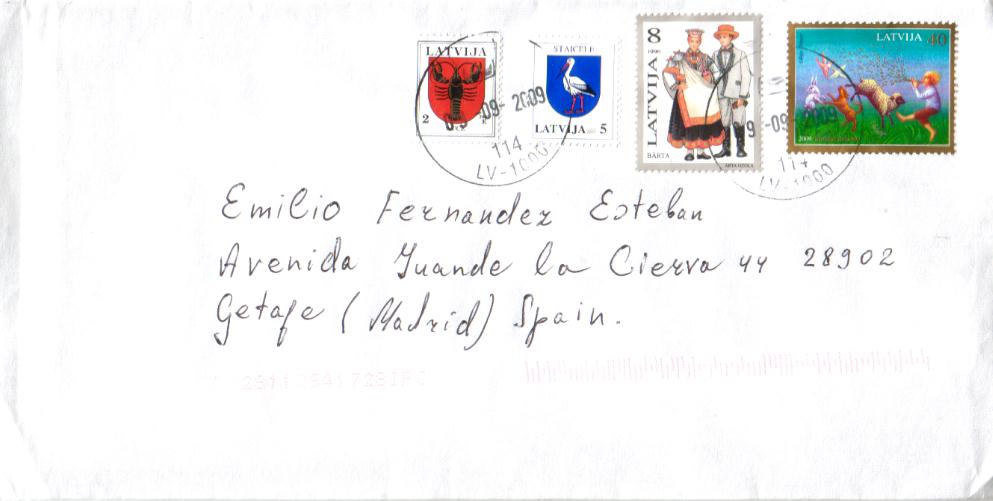 LATVIJA
2
STAICELE
LATVIJA 5
8
1996
LATVIJA
BĀRTA
LATVIJA 40
-09-2009
114
LV-1000
9 -09- 2009
114
LV-1000
Emilio Fernandez Esteban
Avenida Juande la Cierva 44 28902
Getafe (Madrid) Spain.